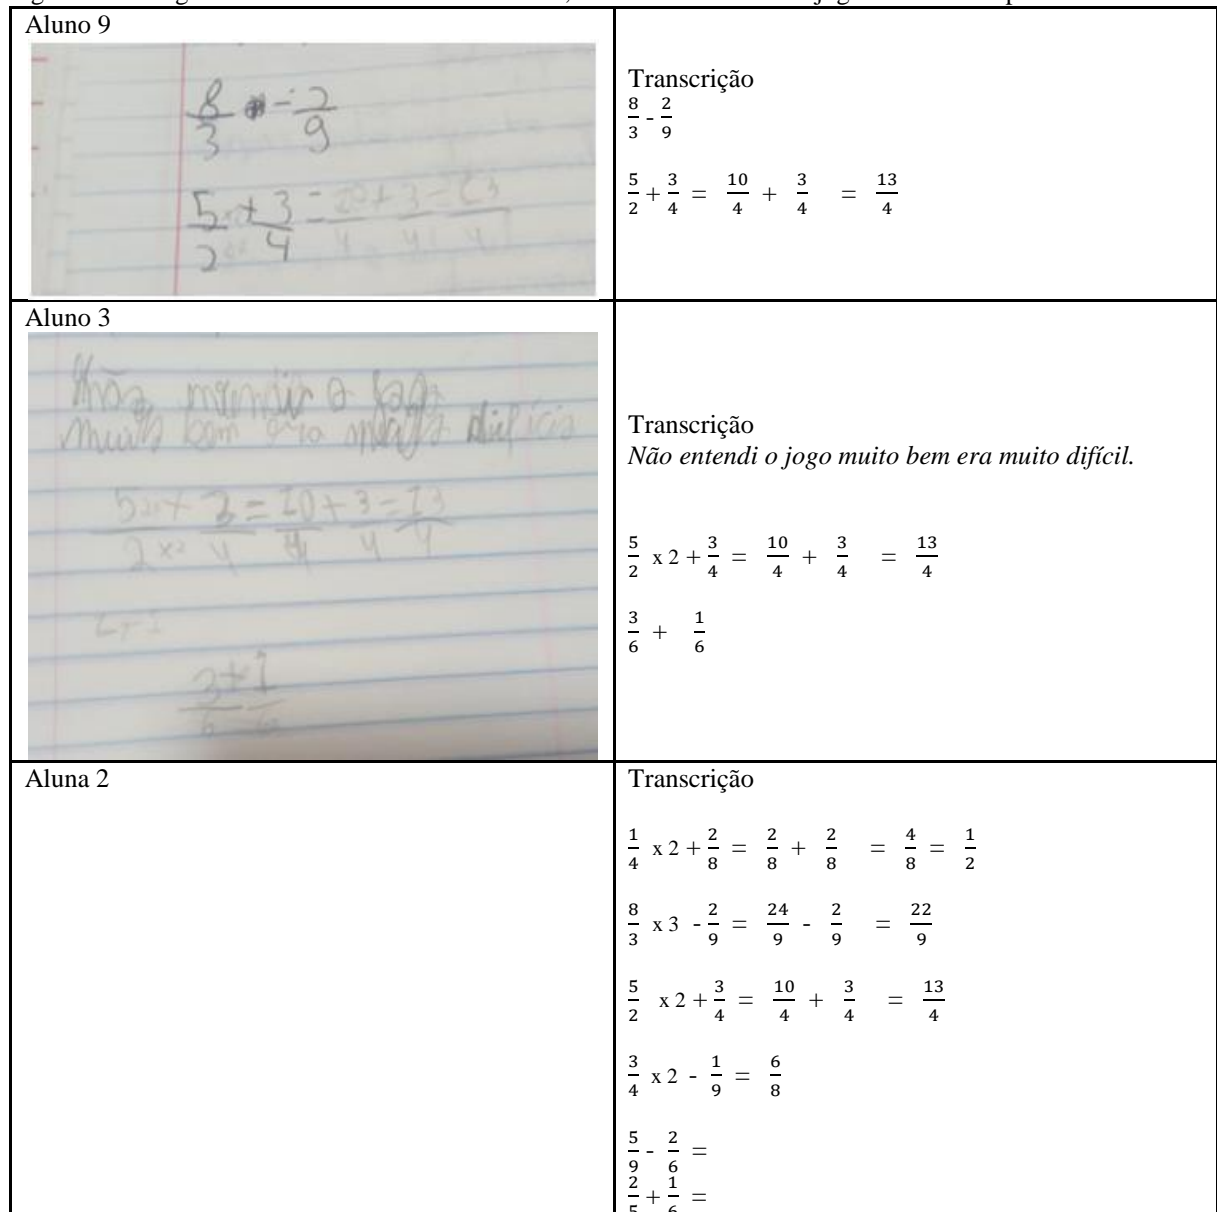 Aluno 9
8/3 ÷ 2/9
5/2 x2 + 3/4 = 10/4 + 3/4 = 13/4
Transcrição
8/3 - 2/9
5/2 + 3/4 = 10/4 + 3/4 = 13/4
Aluno 3
muito bem era difício
5/2 x2 + 3/4 = 10/4 + 3/4 = 13/4
3/6 + 1/6
Transcrição
Não entendi o jogo muito bem era muito difícil.
5/2 x 2 + 3/4 = 10/4 + 3/4 = 13/4
3/6 + 1/6
Aluna 2
Transcrição
1/4 x 2 + 2/8 = 2/8 + 2/8 = 4/8 = 1/2
8/3 x 3 - 2/9 = 24/9 - 2/9 = 22/9
5/2 x 2 + 3/4 = 10/4 + 3/4 = 13/4
3/4 x 2 - 1/9 = 6/8
5/9 - 2/6 =
2/5 + 1/6 =